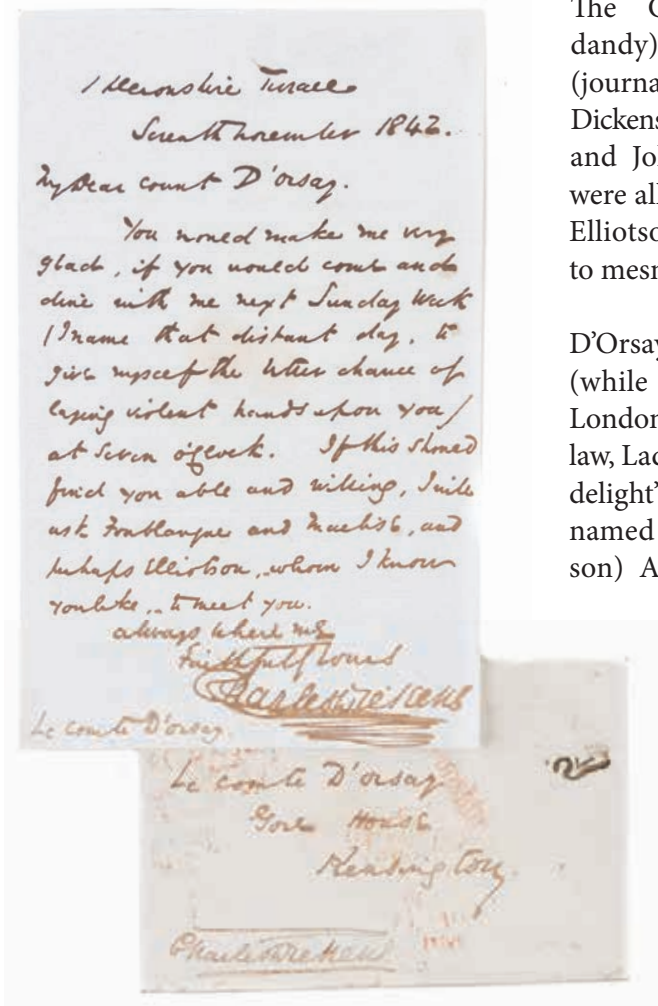 1 Devonshire Terrace
Seventh November 1842.
My Dear Count D'orsay.
You would make me very
glad, if you would come and
dine with me next Sunday Week
(I name that distant day, to
give myself the better chance of
laying violent hands upon you)
at Seven o'Clock. If this should
find you able and willing, I will
ask Fonblanque and Maclise, and
perhaps Elliotson, whom I know
you like, to meet you.
always believe me
Faithfully Yours
Charles Dickens
Le comte D'orsay.
Le comte D'orsay
Gore House
Kensington.
Charles Dickens
The
dandy)
(journa
Dickens
and Jo
were al
Elliotso
to mesm
D'Orsay
(while
London
law, Lad
delight'
named
son) A